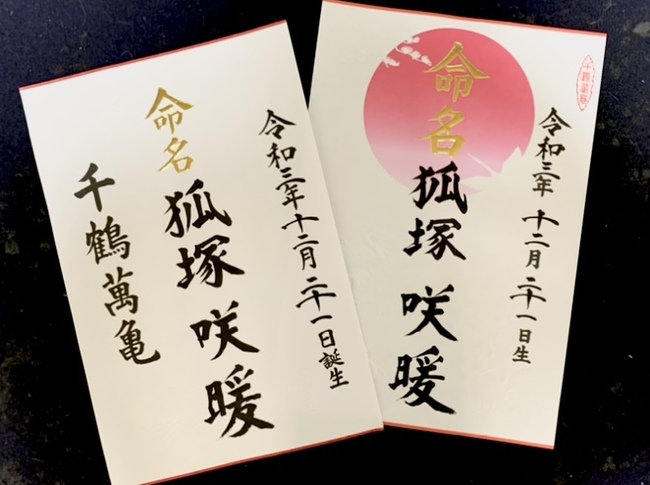 千鶴萬亀
令和三年 十二月二十一日生
命名
狐塚 咲暖
令和三年十二月二十一日誕生
命名
狐塚 咲暖
千鶴萬亀